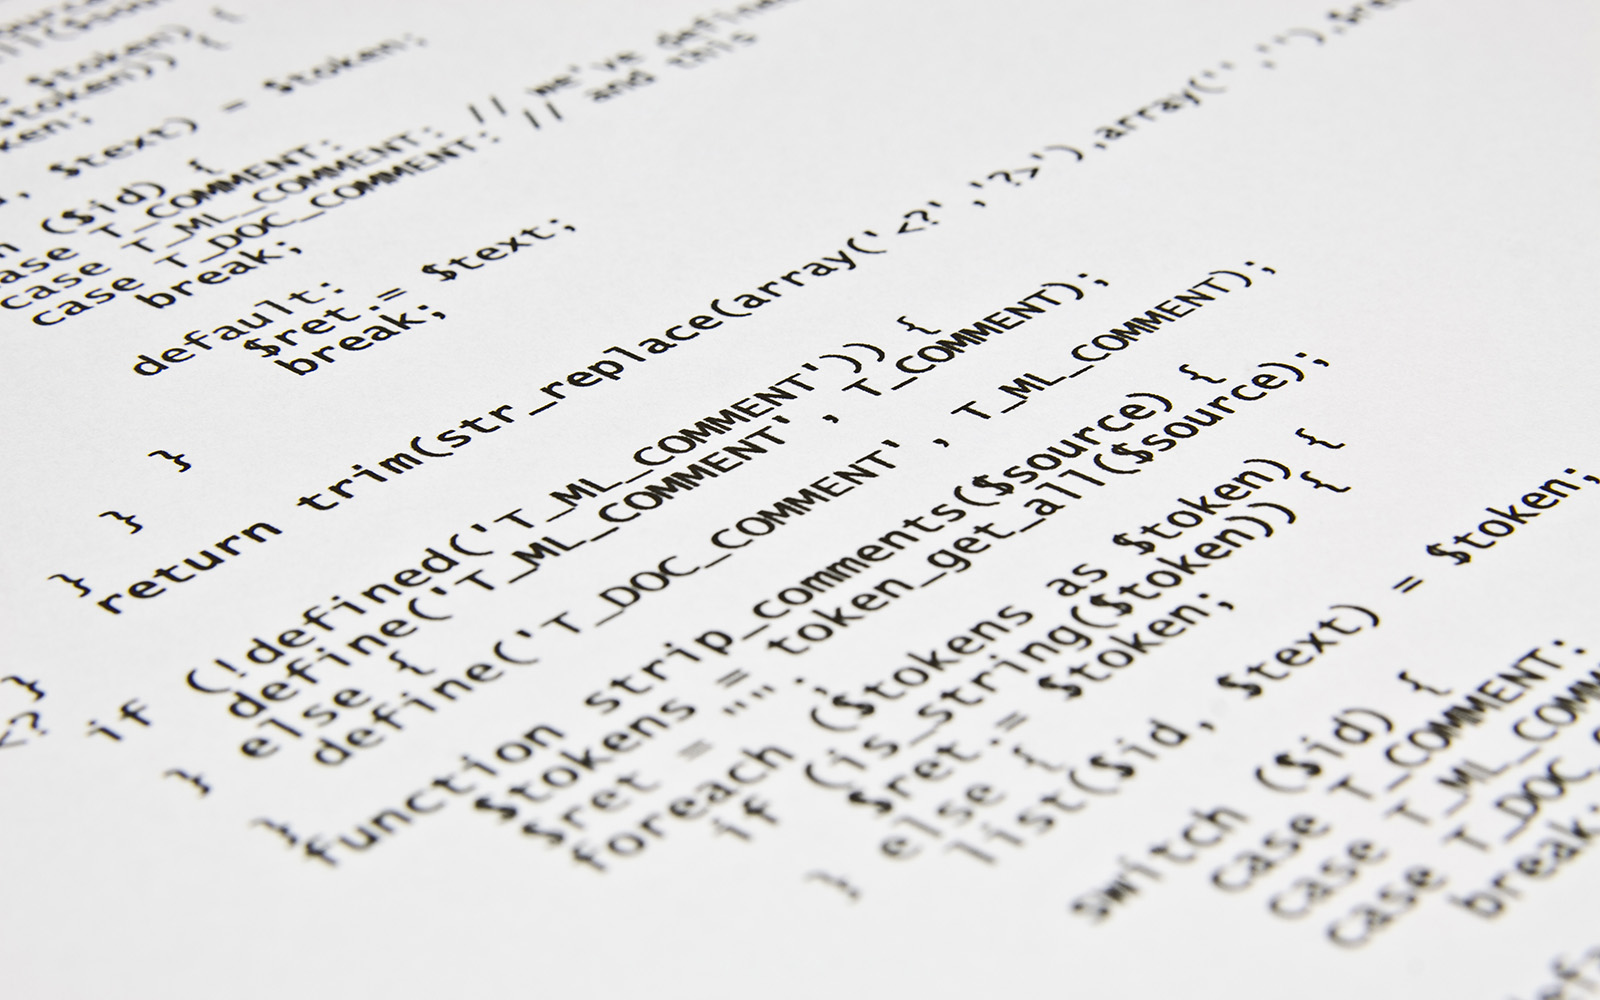 $token)
$token)) {
, $text) = $token;
($id) {
case T_COMMENT:
case T_ML_COMMENT: // we've define
case T_DOC_COMMENT: // and this
break;
default:
$ret .= $text;
break;
}
}
}
return trim(str_replace(array('<?','?>'),array('',''),$re
}
<?
if (!defined('T_ML_COMMENT')) {
define('T_ML_COMMENT', T_COMMENT);
} else {
define('T_DOC_COMMENT', T_ML_COMMENT);
}
function strip_comments($source) {
$tokens = token_get_all($source);
$ret = "";
foreach ($tokens as $token) {
if (is_string($token)) {
$ret.= $token;
} else {
list($id, $text) = $token;
switch ($id) {
case T_COMMENT:
case T_ML_COMM
case T_DOC_
break;